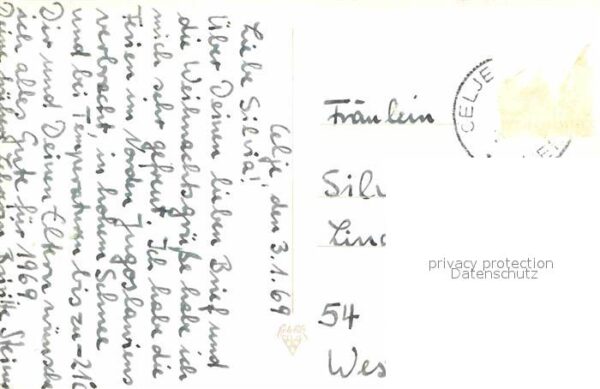 Celje, den 3.1.69
Liebe Silvia!
Über Deinen lieben Brief und
die Weihnachtsgrüße habe ich
mich sehr gefreut. Ich habe die
Ferien im Norden Jugoslawiens
verbracht, in hohem Schnee
und bei Temperaturen bis zu -21
Dir und Deinen Eltern wünsche
ich alles Gute für 1969
Fräulein
Sil
Lind
54
Wes
CELJE
privacy protection
Datenschutz